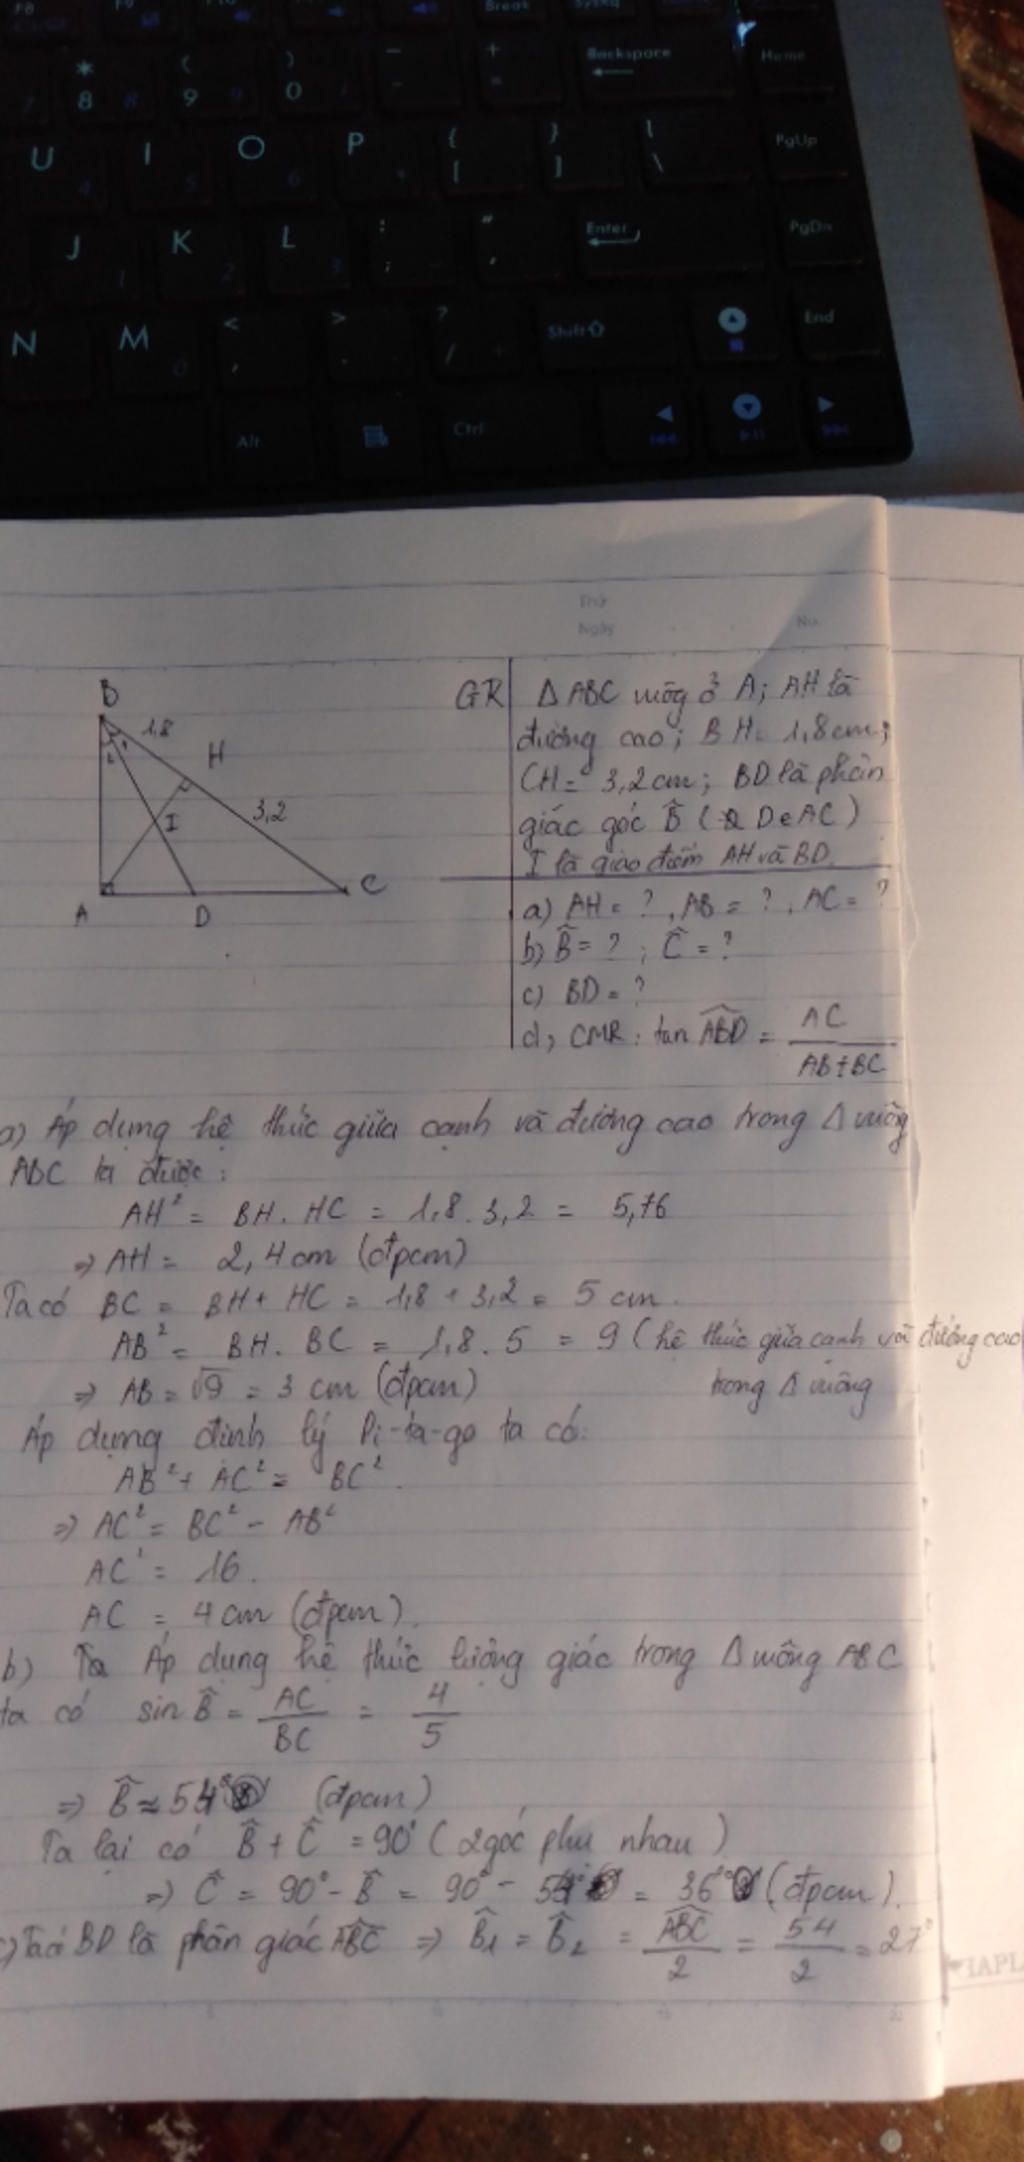 F8
F9
Break
SysRq
* 8 8
( 9 9
) 0
- -
+ =
Backspace
Home
U 4
I 5
O 6
P *
{ [
} ]
\
PgUp
J 1
K 2
L 3
: ;
" '
Enter
PgDn
N
M 0
< ,
> .
? /
Shift
End
Alt
Ctrl
Thứ
Ngày
No.
B
1,8
H
I
3,2
A
D
C
GR
Δ ABC vuông ở A; AH là
đường cao; BH = 1,8cm;
CH = 3,2cm; BD là phân
giác góc B̂ ( D∈AC)
I là giao điểm AH và BD.
a) AH = ?, AB = ?, AC = ?
b) B̂ = ? ; Ĉ = ?
c) BD = ?
d, CMR: tan ABD = AC / AB+BC
a) Áp dụng hệ thức giữa cạnh và đường cao trong Δ vuông
ABC ta được:
AH² = BH . HC = 1,8 . 3,2 = 5,76
⇒ AH = 2,4cm (đpcm)
Ta có BC = BH + HC = 1,8 + 3,2 = 5 cm.
AB² = BH . BC = 1,8 . 5 = 9 (hệ thức giữa cạnh và đường cao
⇒ AB = √9 = 3 cm (đpcm) trong Δ vuông
Áp dụng định lý Pi-ta-go ta có:
AB² + AC² = BC².
⇒ AC² = BC² - AB²
AC² = 16.
AC = 4cm (đpcm).
b) Ta Áp dụng hệ thức lượng giác trong Δ vuông ABC
ta có sin B̂ = AC / BC = 4 / 5
⇒ B̂ ≈ 54° (đpcm)
Ta lại có B̂ + Ĉ = 90° (2 góc phụ nhau)
⇒ Ĉ = 90° - B̂ = 90° - 54° = 36° (đpcm).
c) Ta có BD là phân giác ABC ⇒ B̂1 = B̂2 = ABC / 2 = 54 / 2 = 27°